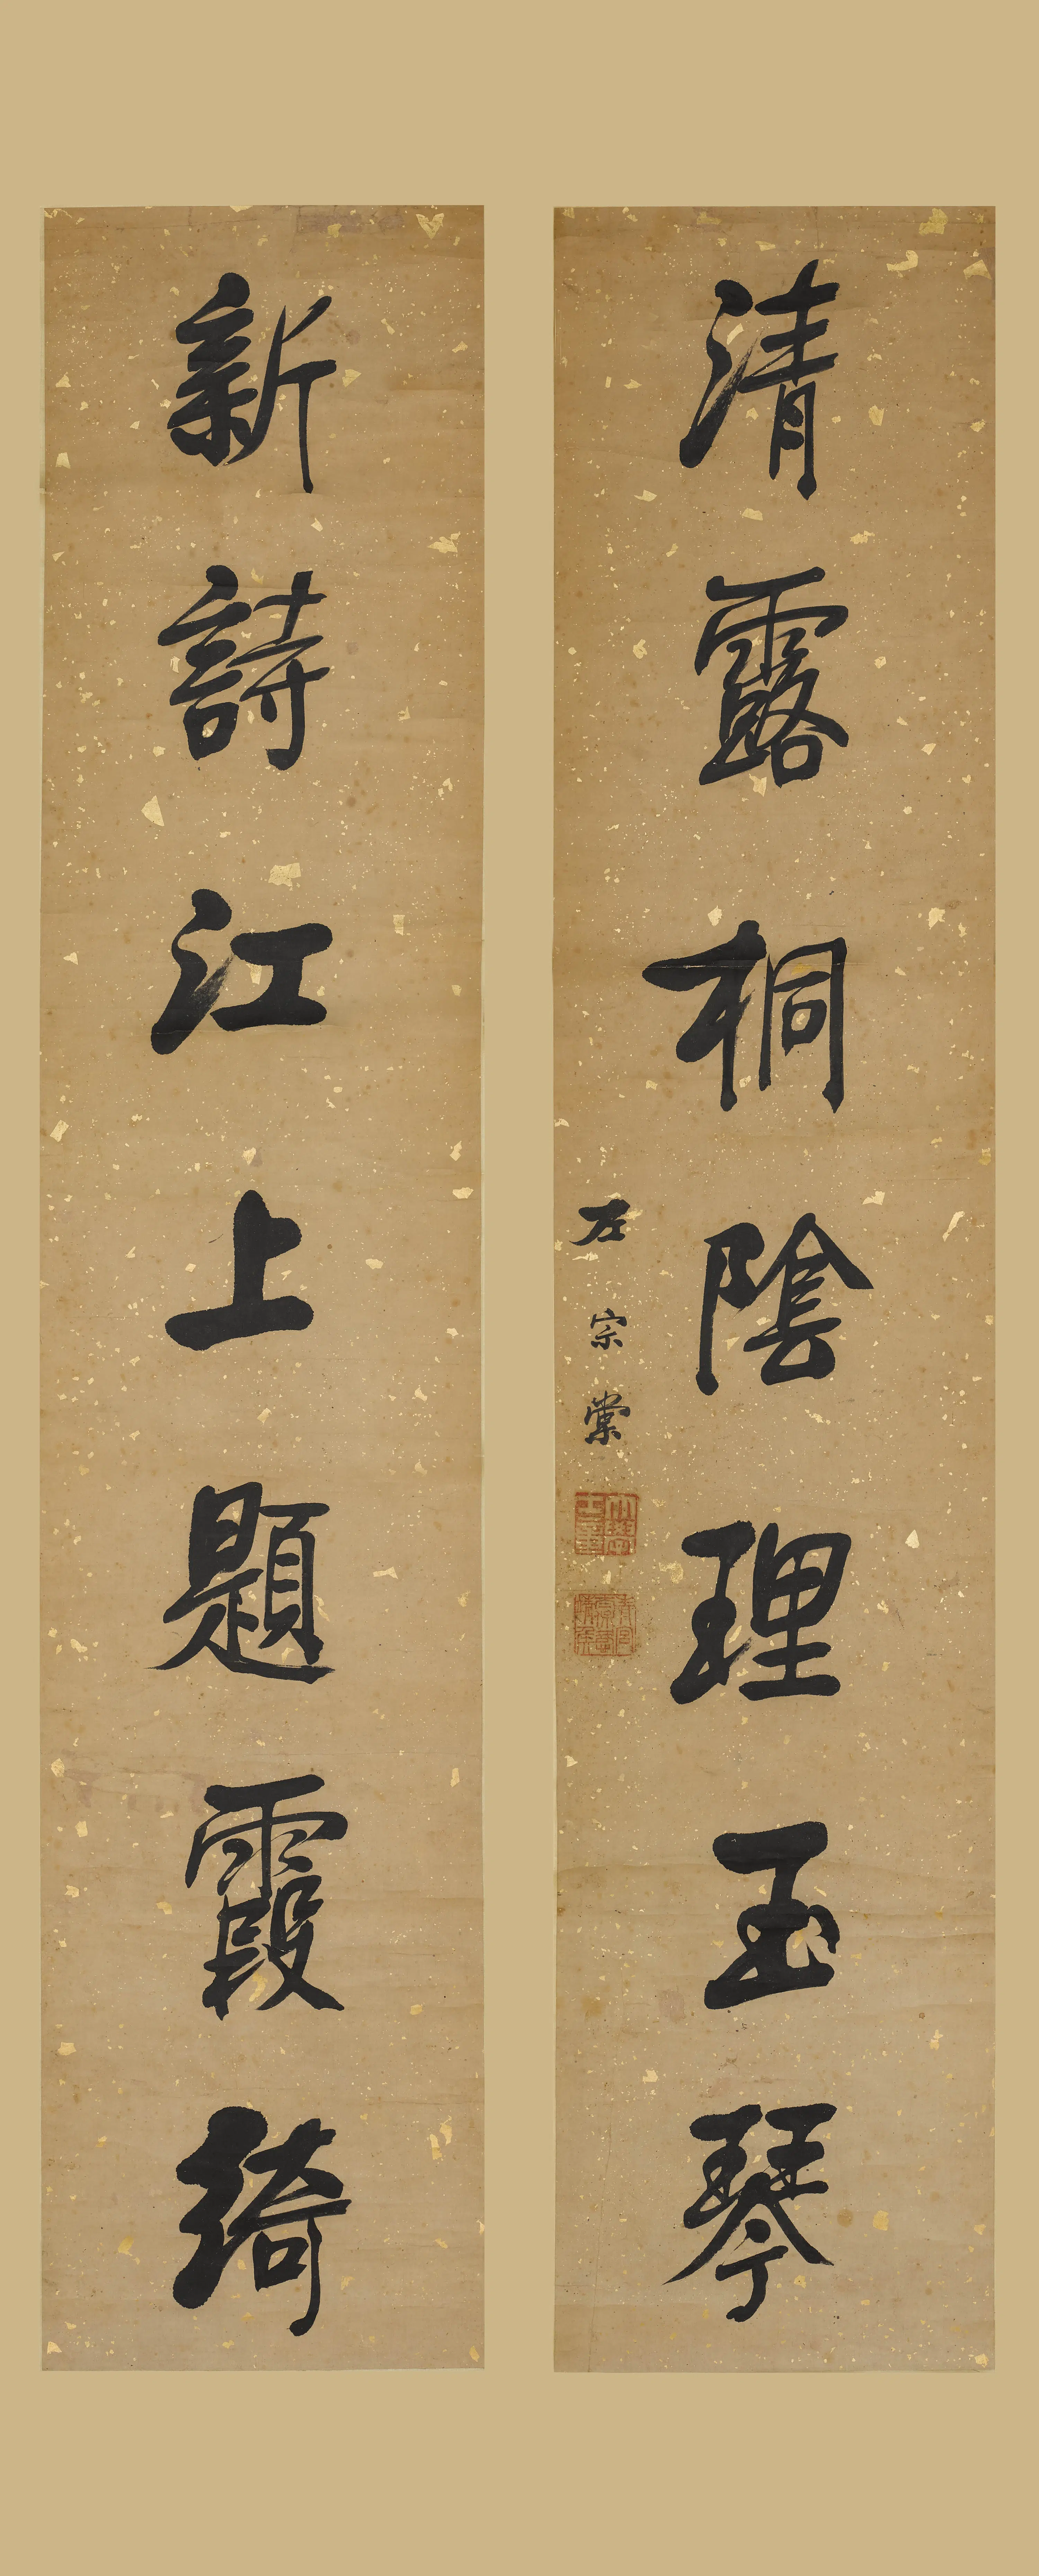 清露桐陰理玉琴
左宗棠
新詩江上題霞綺